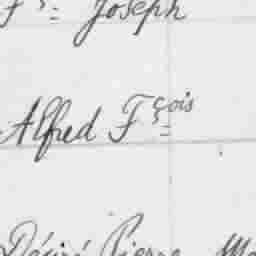 Fs Joseph
Alfred Fçois
Désiré Pierre